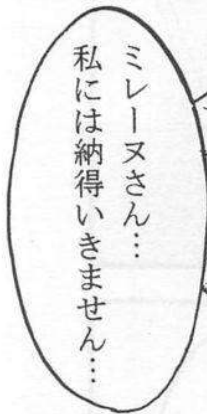 ミレーヌさん…
私には納得いきません…